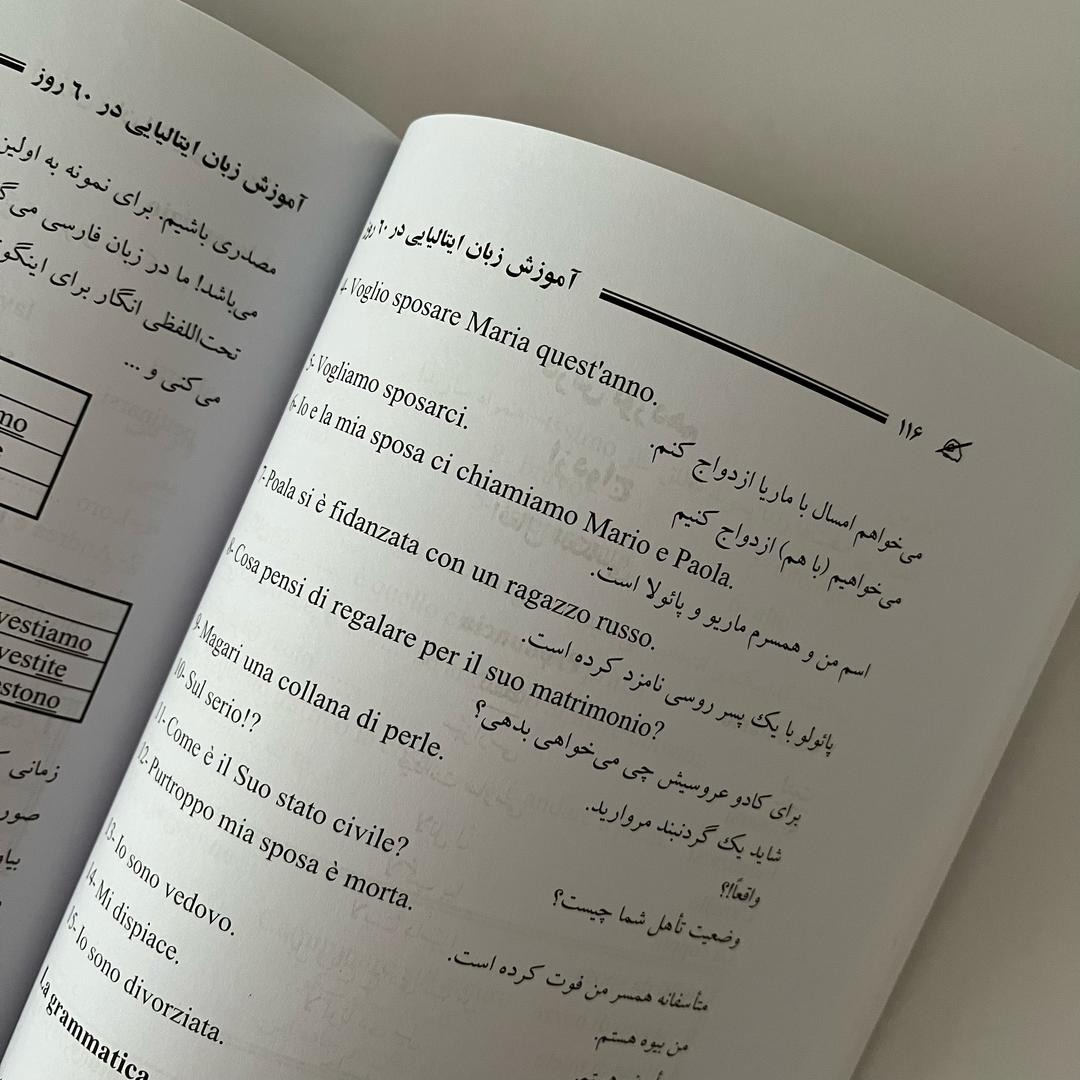 آموزش زبان ایتالیایی در ٦٠ روز
مصدری باشیم. برای نمونه به
می‌باشد! ما در زبان فارسی
تحت‌اللفظی انگار برای
می‌کنی و ...
vestiamo
vestite
stono
زمانی
آموزش زبان ایتالیایی در ٦٠ روز
۱۱۶
4- Voglio sposare Maria quest'anno.
می‌خواهم امسال با ماریا ازدواج کنم.
5- Vogliamo sposarci.
می‌خواهیم (با هم) ازدواج کنیم
6- Io e la mia sposa ci chiamiamo Mario e Paola.
اسم من و همسرم ماریو و پائولا است.
7- Poala si è fidanzata con un ragazzo russo.
پائولو با یک پسر روسی نامزد کرده است.
8- Cosa pensi di regalare per il suo matrimonio?
برای کادو عروسیش چی می‌خواهی بدهی؟
9- Magari una collana di perle.
شاید یک گردنبند مروارید.
10- Sul serio!?
واقعاً!؟
11- Come è il Suo stato civile?
وضعیت تأهل شما چیست؟
12- Purtroppo mia sposa è morta.
متأسفانه همسر من فوت کرده است.
13- Io sono vedovo.
من بیوه هستم.
14- Mi dispiace.
15- Io sono divorziata.
La grammatica